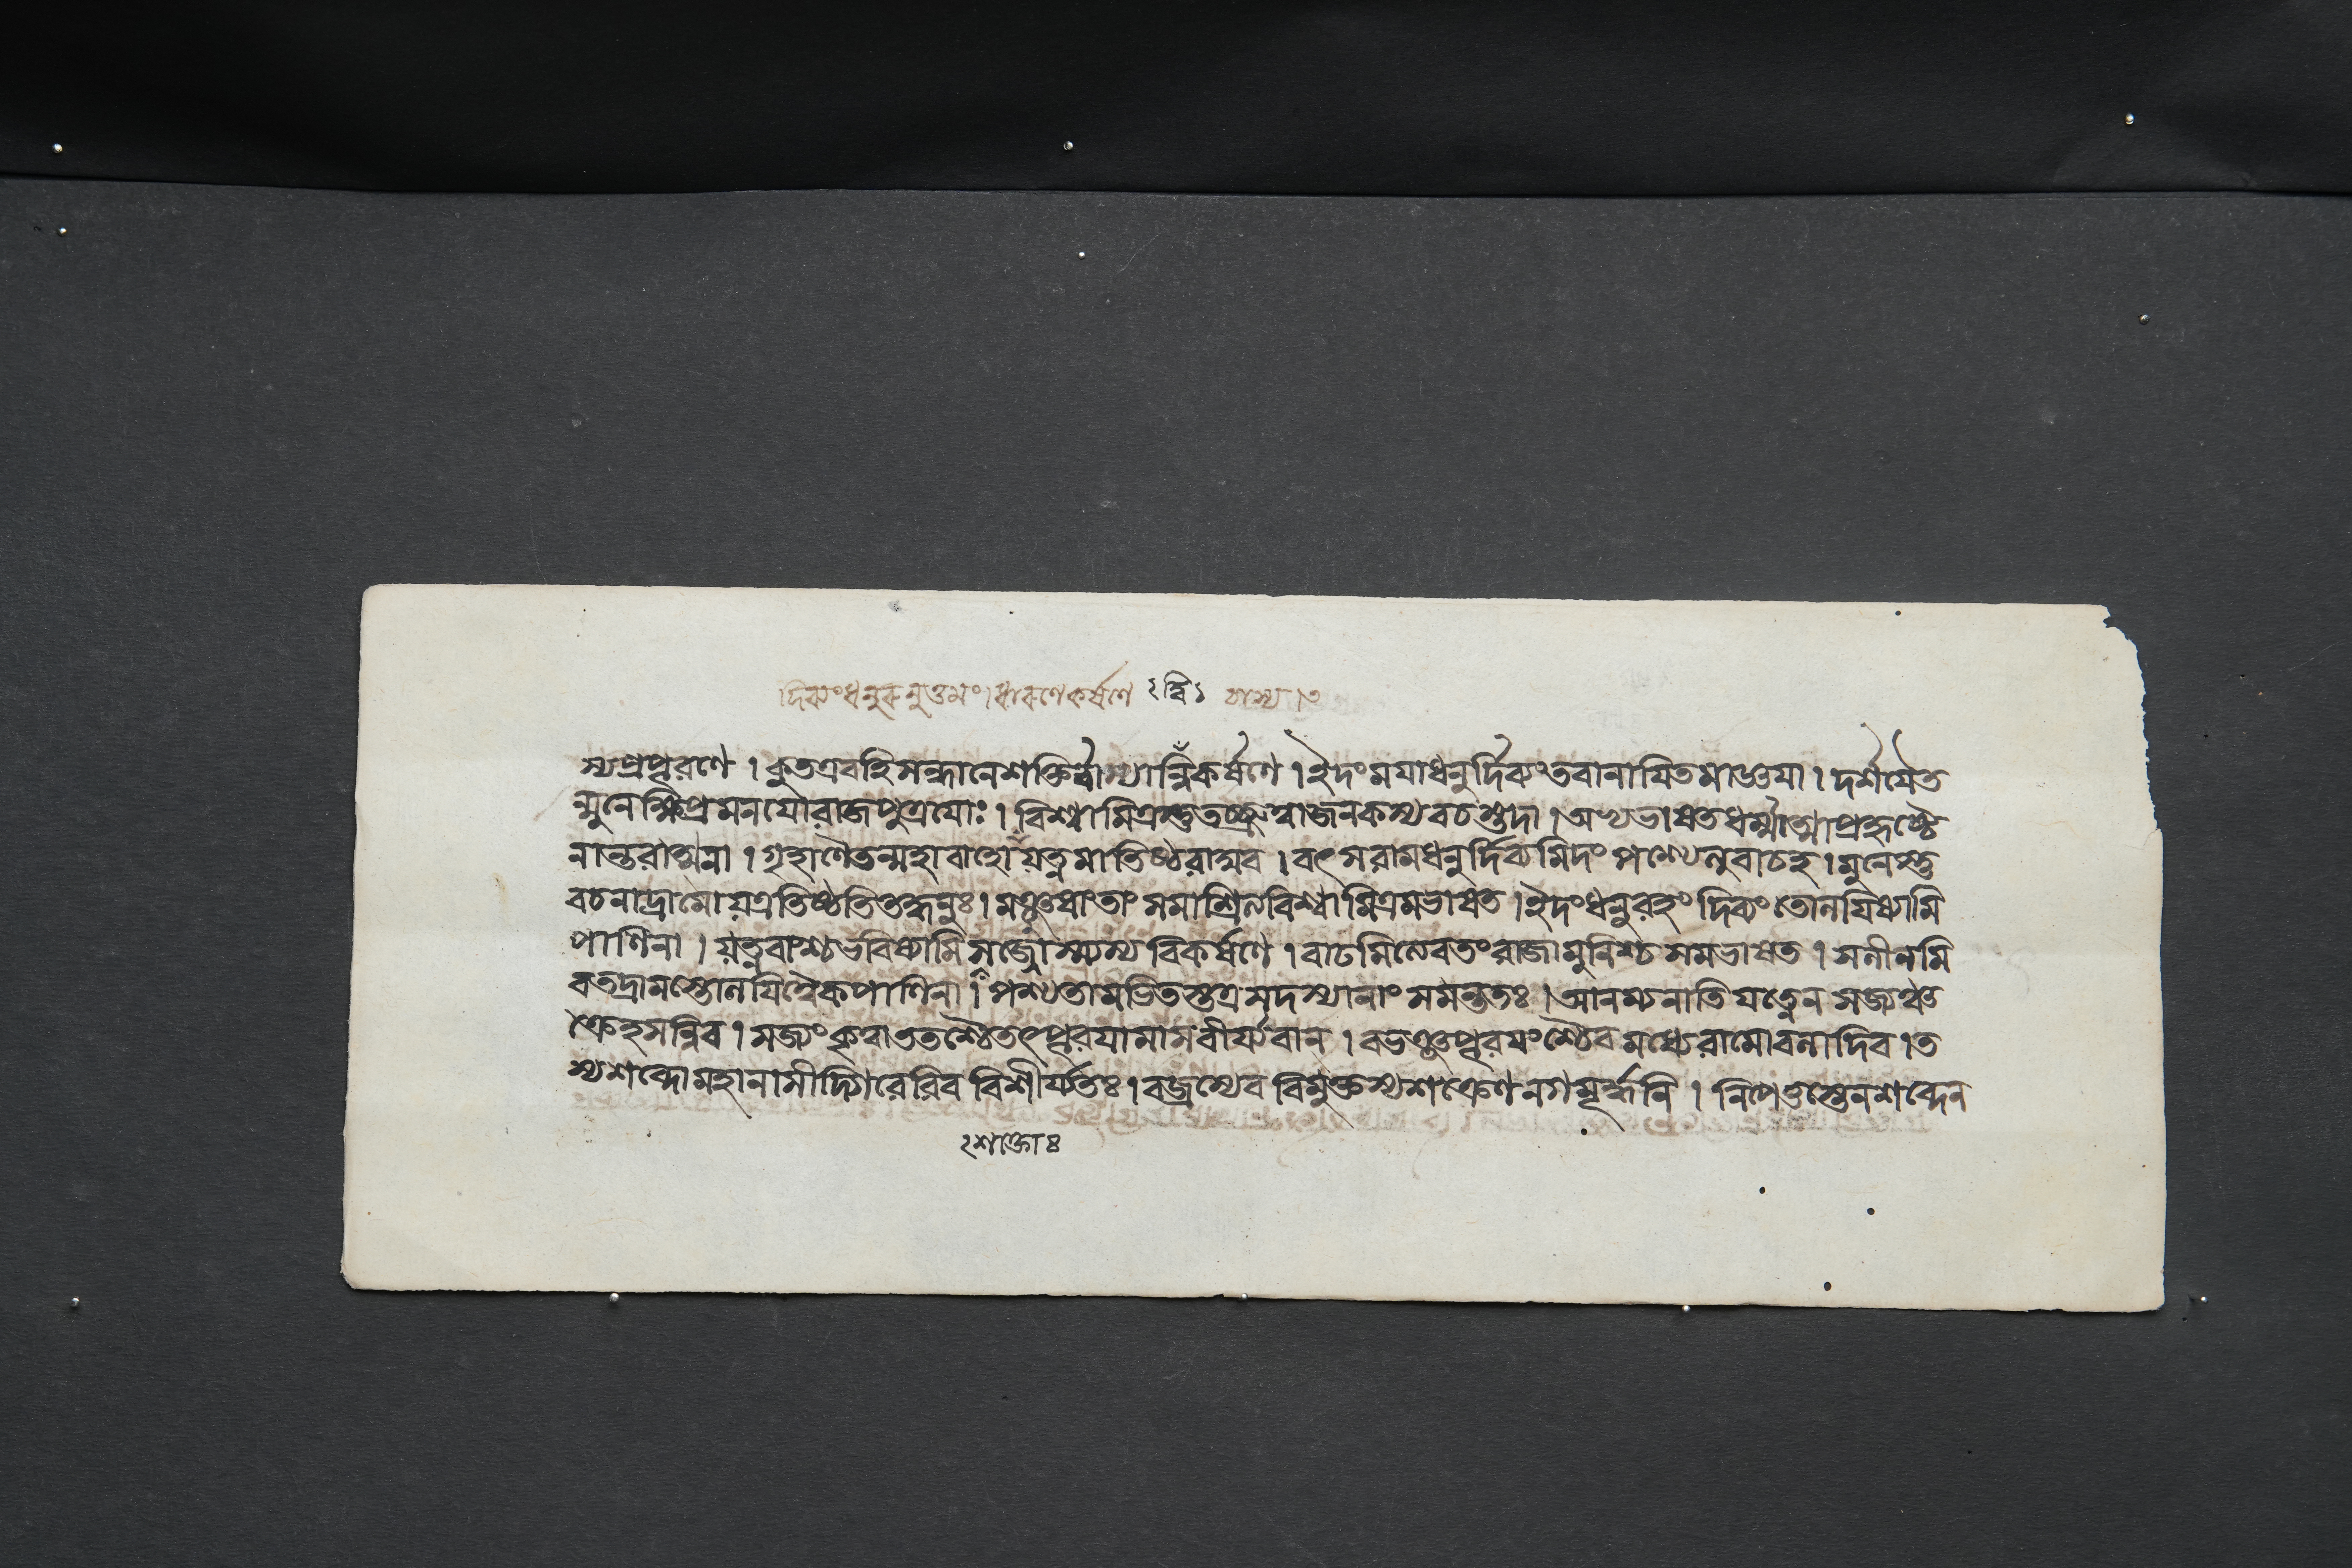 দিব্যংধনুরনুত্তমং।ধারণেকর্ষণে ২ ন্বি ১ বাস্য।৩
স্যপ্রপূরণে । কুতএবহিসন্ধানেশক্তির্বাস্যান্নিকর্ষণে । ইদংময়াধনুর্দিব্যংতবানাযিতমাজ্ঞয়া । দর্শয়ৈত
ন্মুনেক্ষিপ্রমনয়োরাজপুত্রয়োঃ । বিশ্বামিত্রস্তুতচ্ছ্রুত্বাজনকস্যবচস্তদা । অভ্যভাষতধর্ম্মাত্মাপ্রহৃষ্টে
নান্তরাত্মনা । গৃহাণৈতন্মহাবাহোযত্নমাতিষ্ঠরাঘব । বৎসরামধনুর্দিব্যমিদংপশ্যেত্যুবাচহ । মুনেস্তু
বচনাদ্রামোযত্রতিষ্ঠতিতদ্ধনুঃ । মঞ্জুষাংতাংসমাশ্রিত্যবিশ্বামিত্রমভাষত । ইদংধনুরহংদিব্যংতোলযিষ্যামি
পাণিনা । যত্নবাংশ্চভবিষ্যামিসজ্জ্যেস্যস্যবিকর্ষণে । বাঢমিত্যেবতংরাজামুনিশ্চসমভাষত । সলীলমি
বতদ্রামস্তোলযিত্বৈকপাণিনা । পশ্যতামভিতস্তত্রসদস্যানাংসমন্ততঃ । আনম্যনাতিযত্নেনসজ্যঞ্চ
ক্রেহসন্নিব । সজ্যংকৃত্বাততশ্চৈতৎপূরয়ামাসবীর্য্যবান্ । বভঞ্জপূরয়ংশ্চৈবমধ্যেরামোবলাদিব । ত
স্যশব্দোমহানাসীদ্গিরেরিববিশীর্য্যতঃ । বজ্রস্যেববিমুক্তস্যশক্রেণনগমূর্দ্ধনি । নিপেতুস্তেনশব্দেন
২শক্তোঃ